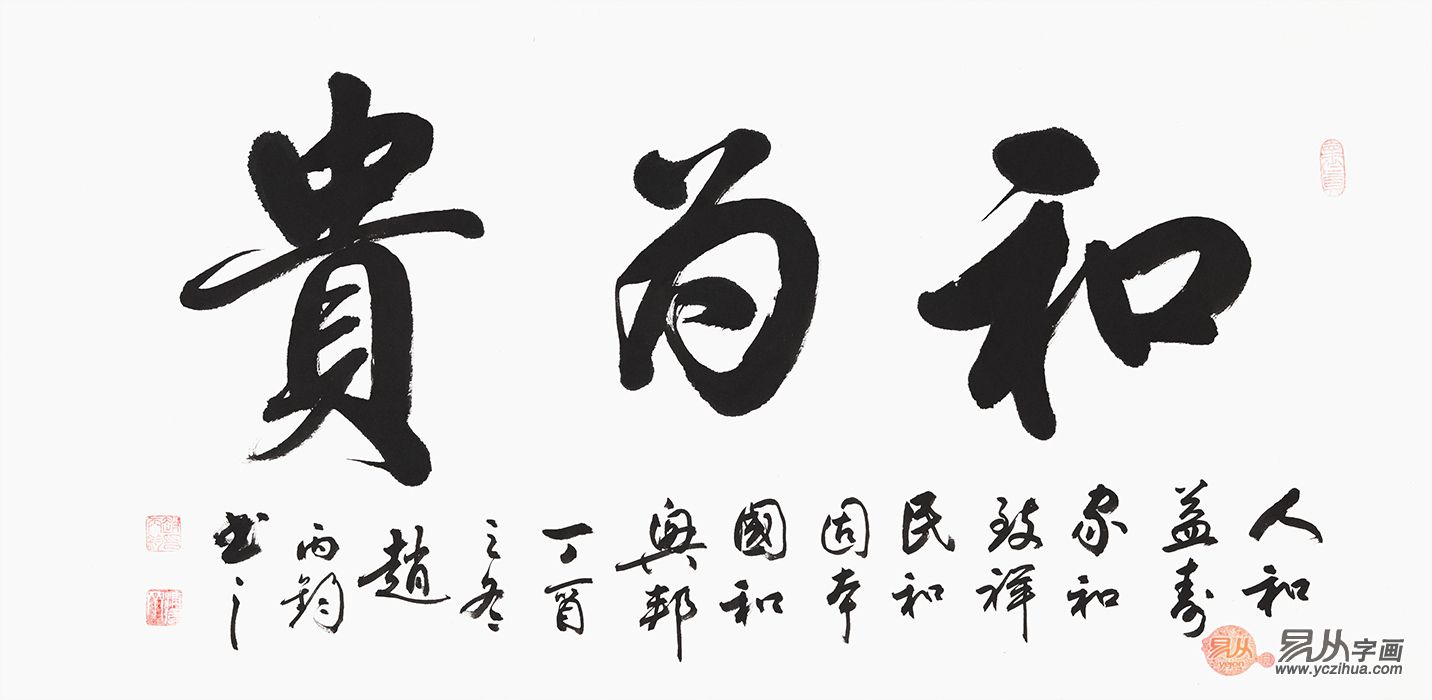 和為貴
人和
益壽
家和
致祥
民和
固本
國和
興邦
丁酉
之冬
趙
丙鈞
書之
易从
yejon
易从字画
www.yczihua.com